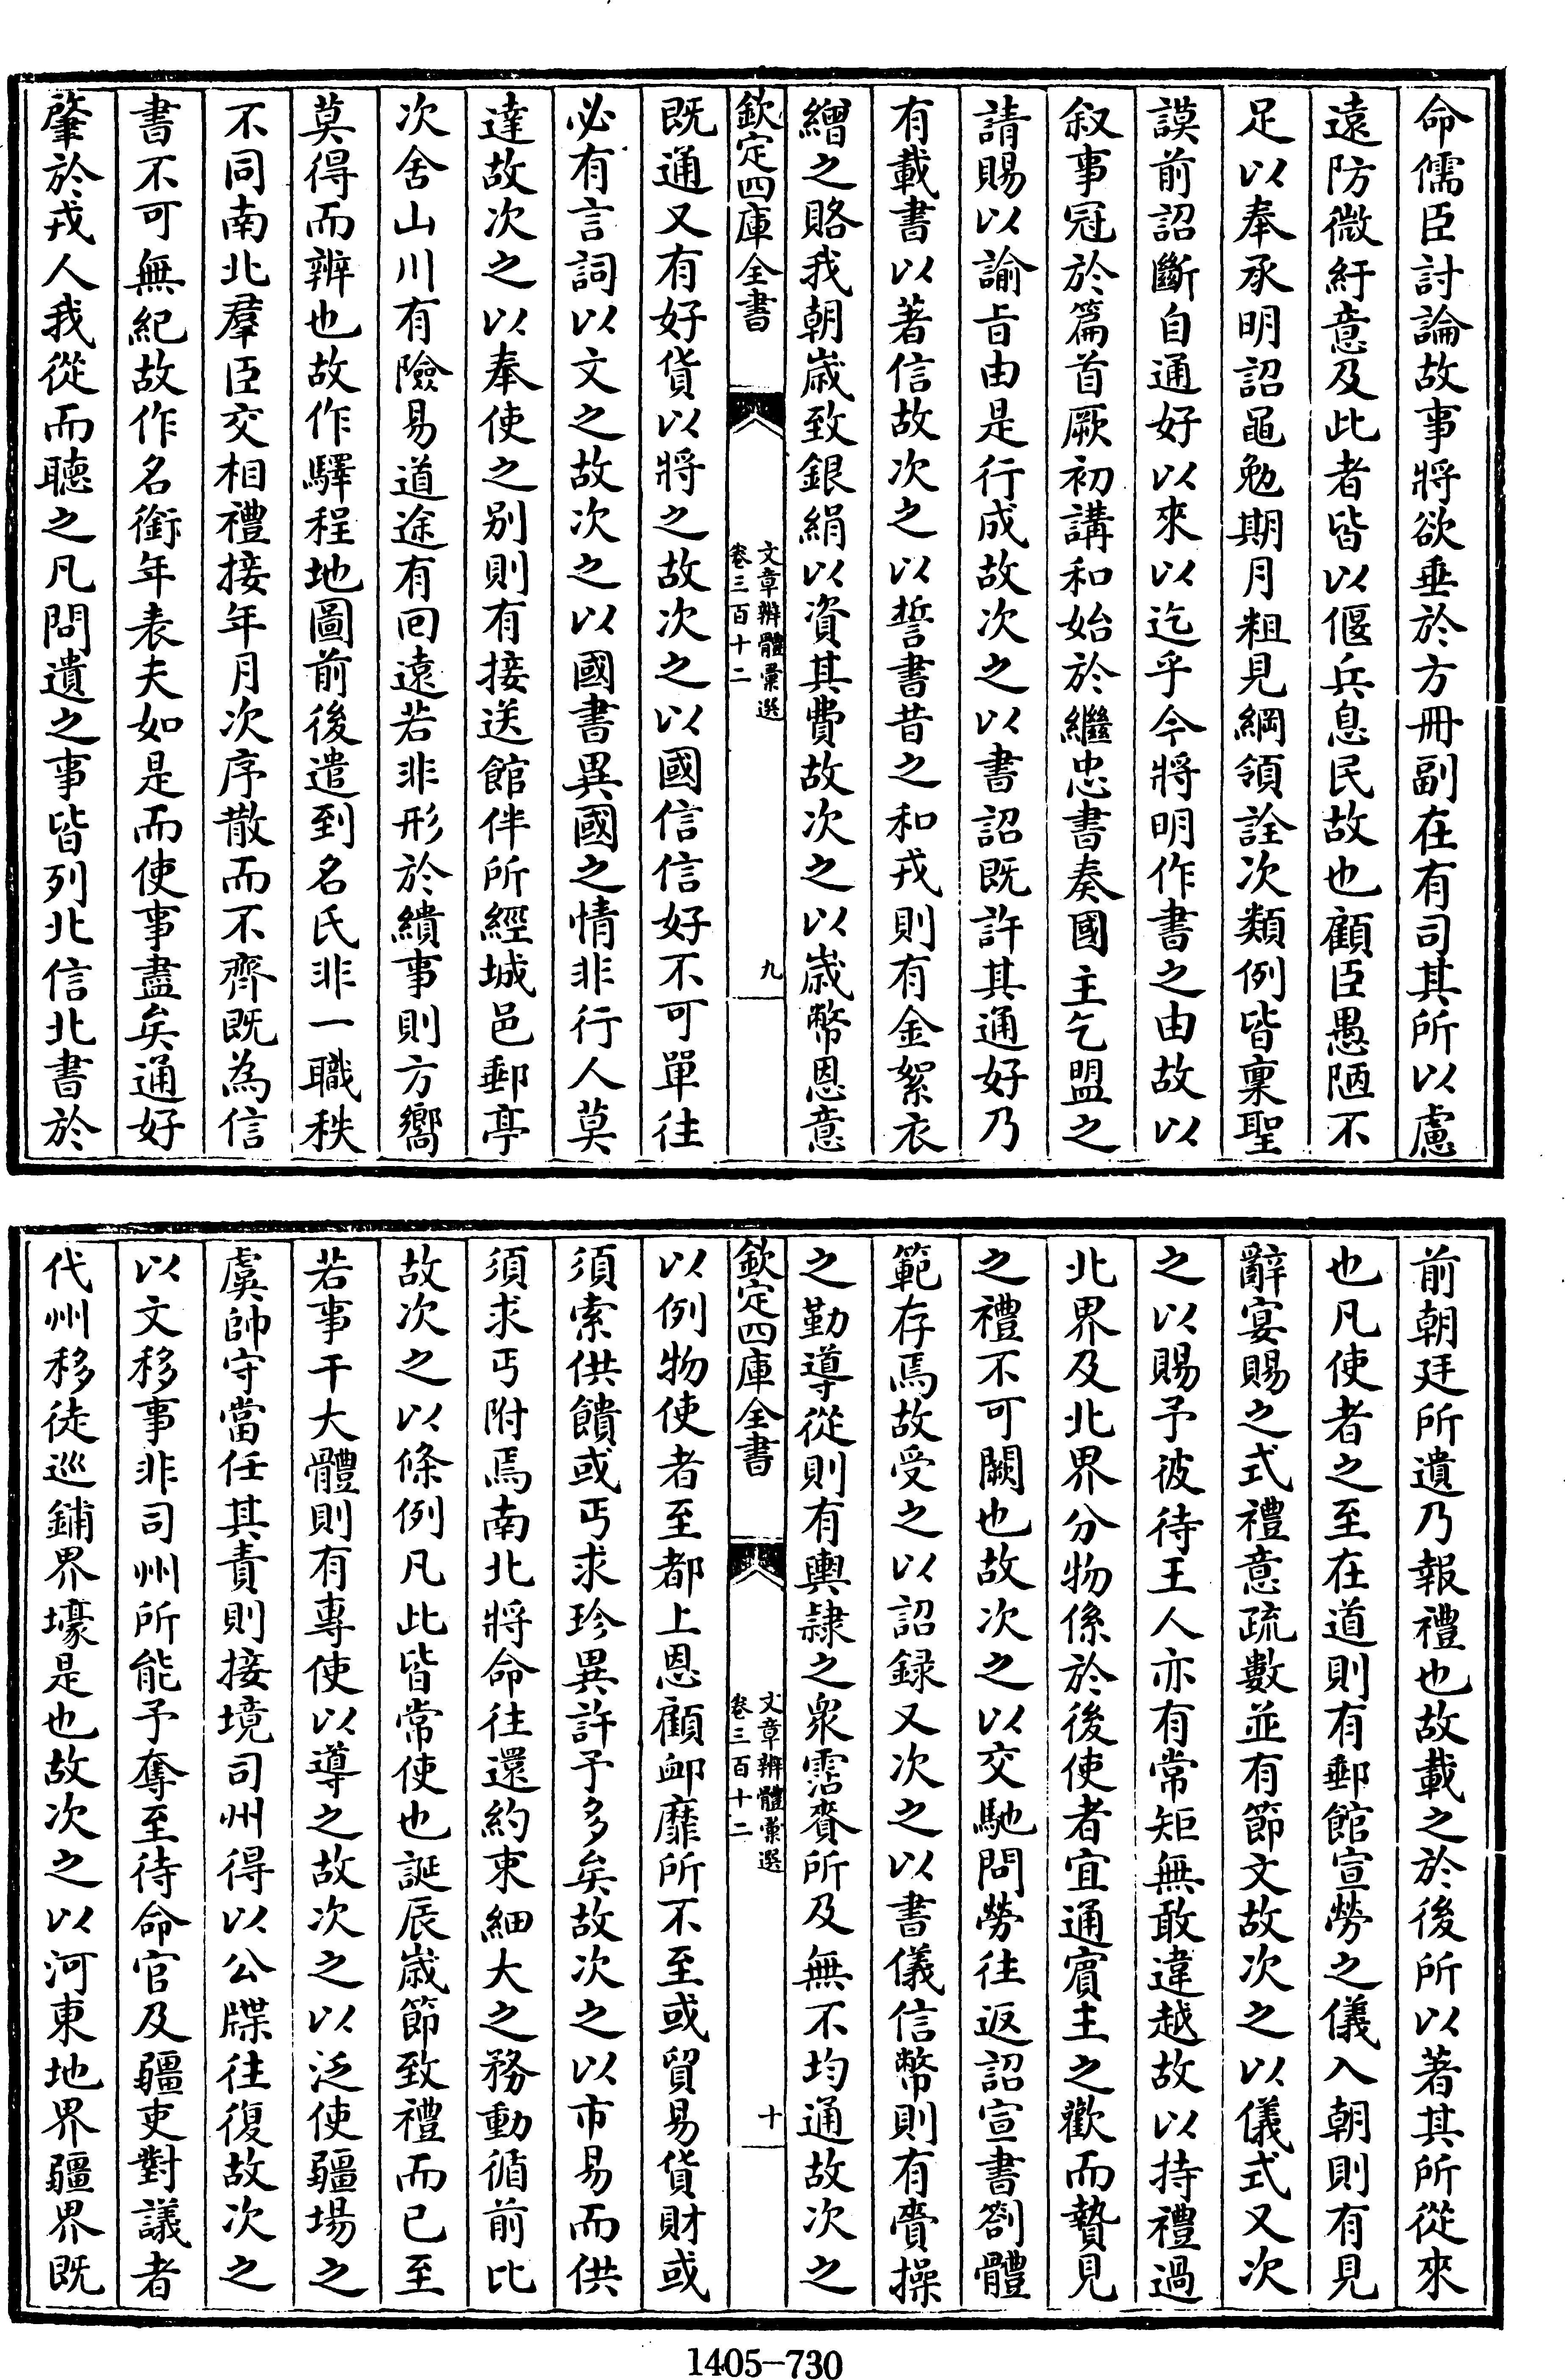 命儒臣討論故事將欲垂於方冊副在有司其所以慮
遠防微紆意及此者皆以偃兵息民故也顧臣愚陋不
足以奉承明詔黽勉期月粗見綱領詮次類例皆稟聖
謨前詔斷自通好以來以迄乎今將明作書之由故以
叙事冠於篇首厥初講和始於繼忠書奏國主乞盟之
請賜以諭㫖由是行成故次之以書詔既許其通好乃
有載書以著信故次之以誓書昔之和戎則有金絮衣
繒之賂我朝歲致銀絹以資其費故次之以歲幣恩意
欽定四庫全書
文章辨體彙選
卷三百十二
九
既通又有好貨以將之故次之以國信信好不可單往
必有言詞以文之故次之以國書異國之情非行人莫
達故次之以奉使之别則有接送館伴所經城邑郵亭
次舍山川有險易道途有回遠若非形於繢事則方嚮
莫得而辨也故作驛程地圖前後遣到名氏非一職秩
不同南北羣臣交相禮接年月次序散而不齊既為信
書不可無紀故作名銜年表夫如是而使事盡矣通好
肇於戎人我從而聽之凡問遺之事皆列北信北書於
前朝廷所遺乃報禮也故載之於後所以著其所從來
也凡使者之至在道則有郵館宣勞之儀入朝則有見
辭宴賜之式禮意疏數並有節文故次之以儀式又次
之以賜予彼待王人亦有常矩無敢違越故以持禮過
北界及北界分物係於後使者宜通賓主之歡而贄見
之禮不可闕也故次之以交馳問勞往返詔宣書劄體
範存焉故受之以詔録又次之以書儀信幣則有賷操
之勤導從則有輿隷之衆霑賚所及無不均通故次之
欽定四庫全書
文章辨體彙選
卷三百十二
十
以例物使者至都上恩顧䘏靡所不至或貿易貨財或
須索供饋或丐求珍異許予多矣故次之以市易而供
須求丐附焉南北將命往還約束細大之務動循前比
故次之以條例凡此皆常使也誕辰歲節致禮而已至
若事干大體則有專使以導之故次之以泛使疆場之
虞帥守當任其責則接境司州得以公牒往復故次之
以文移事非司州所能予奪至待命官及疆吏對議者
代州移徙巡鋪界壕是也故次之以河東地界疆界既
1405-730